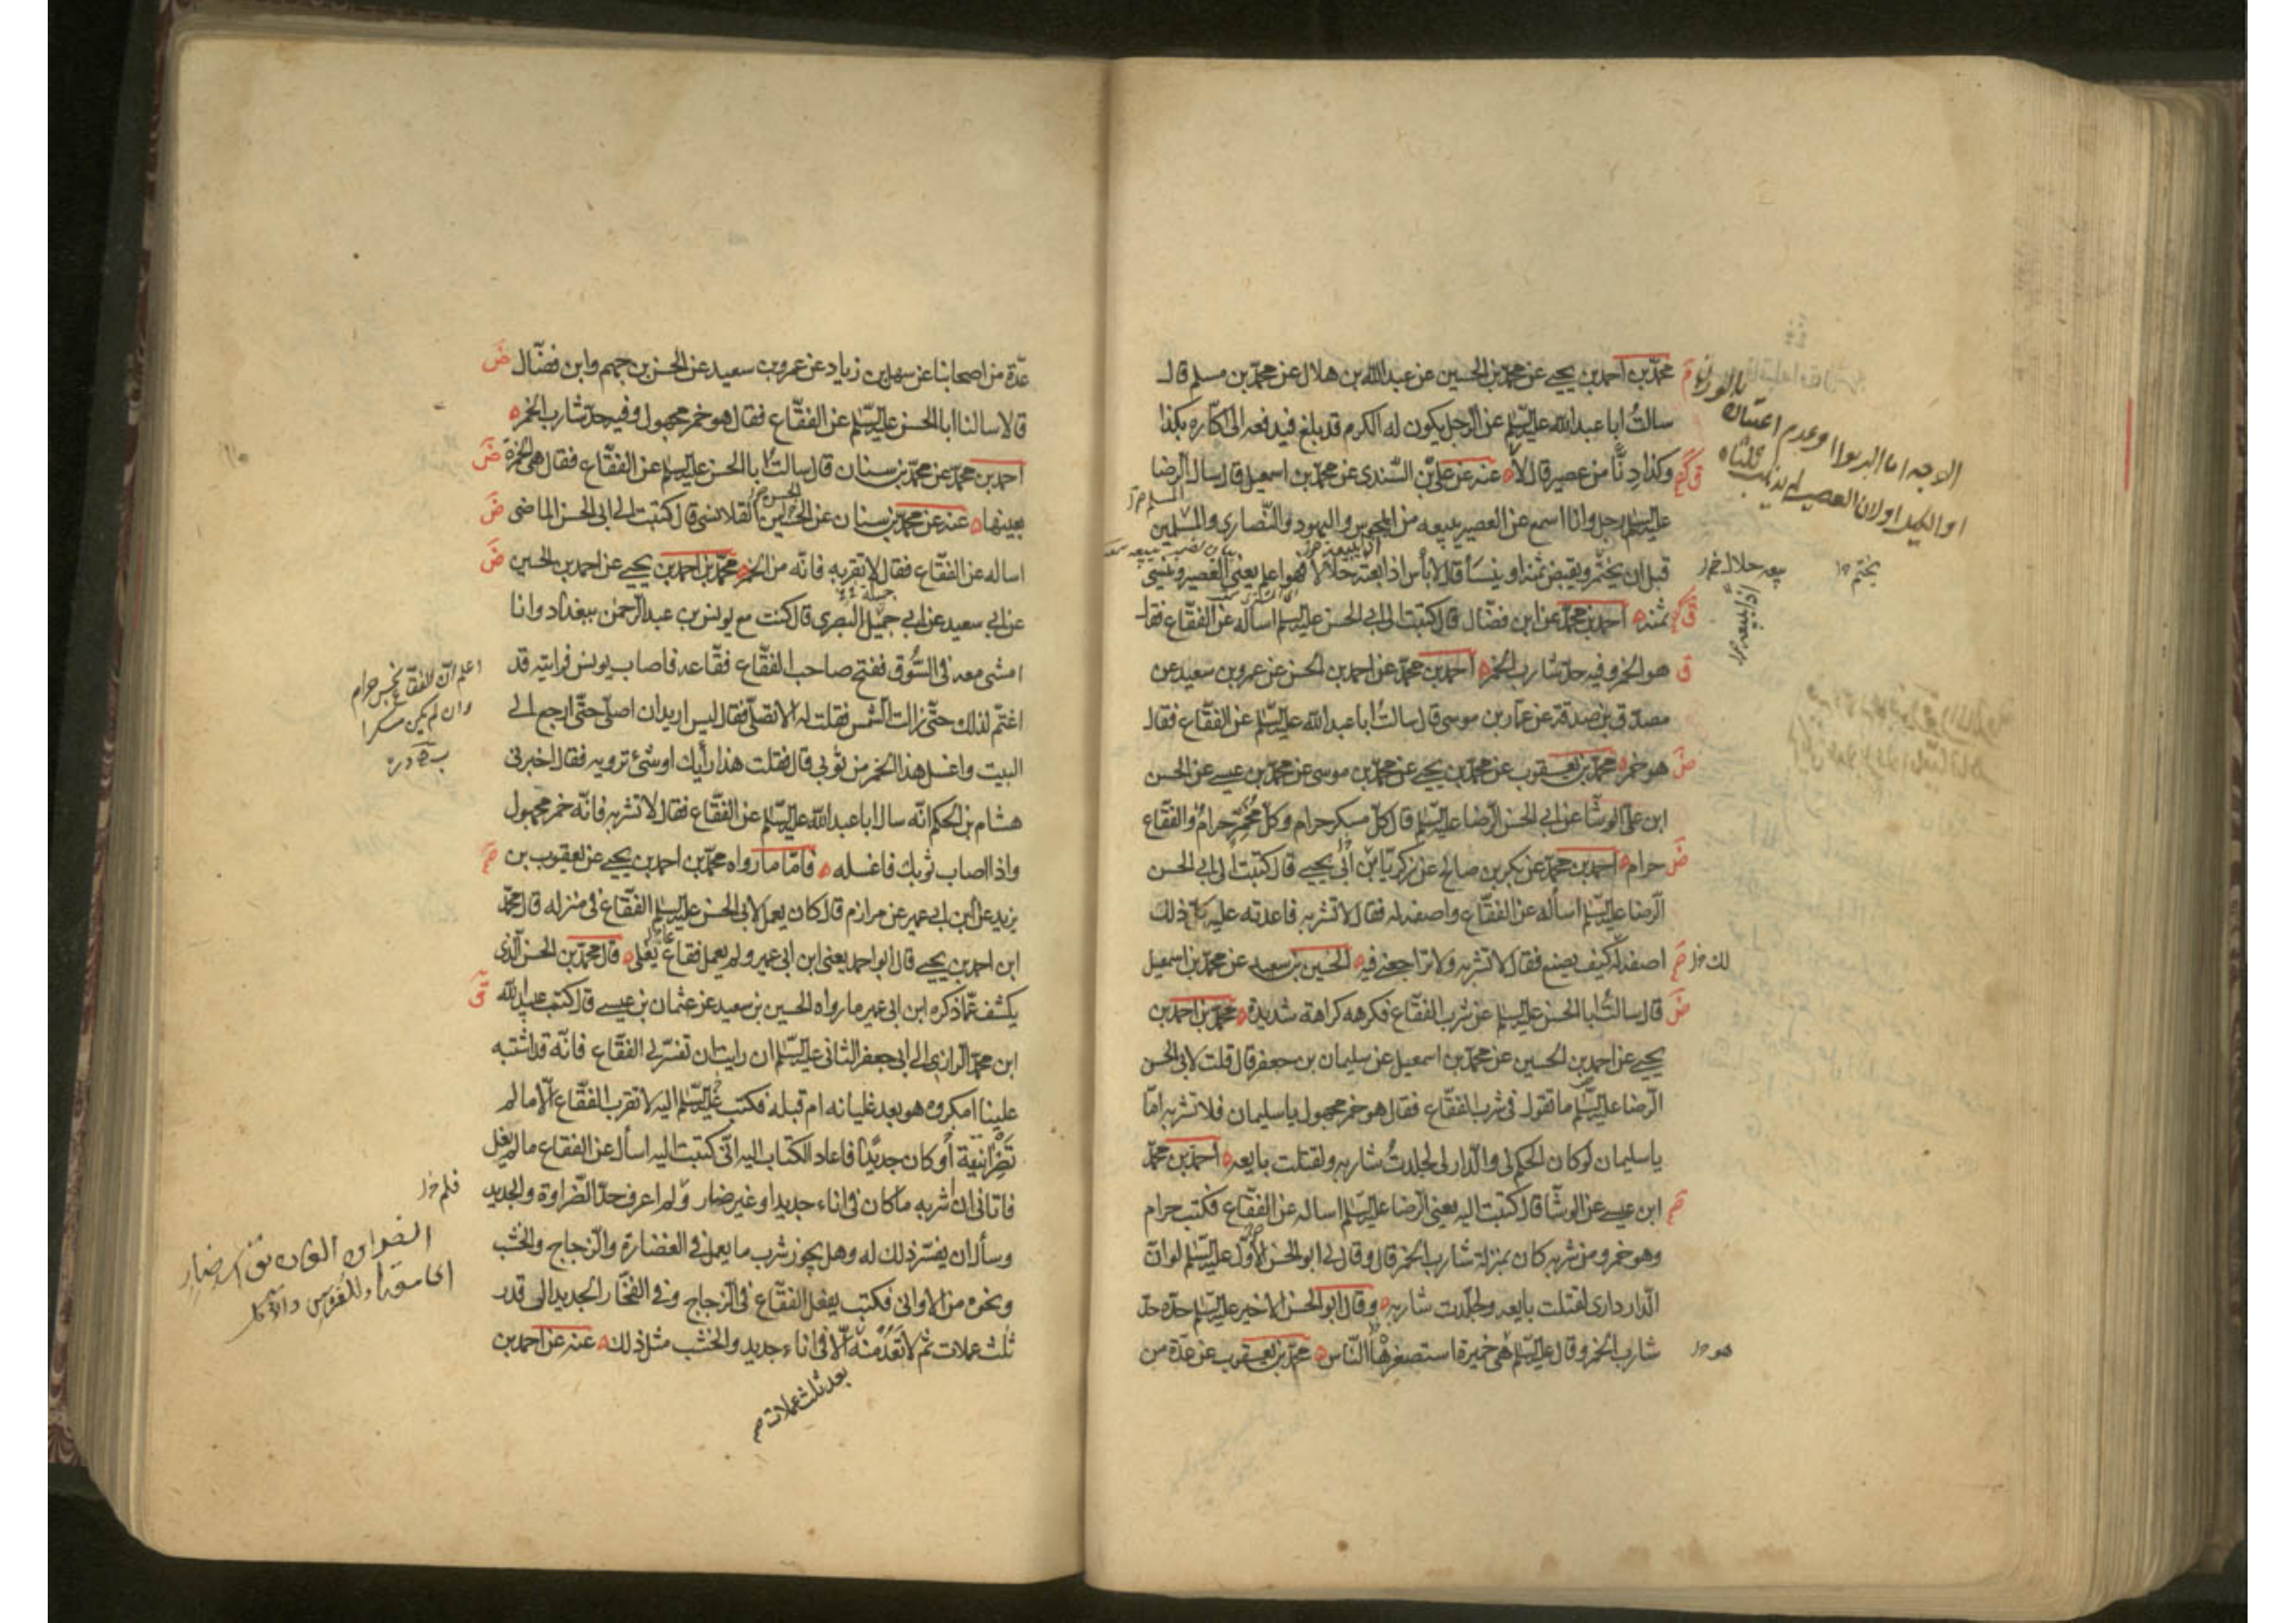 محمّد بن احمد بن يحيى عن محمّد بن الحسين عن عبد الله بن هلال عن محمّد بن مسلم قال
سالتُ ابا عبد الله عليه السّلم عن الرّجل يكون له الكرم قد بلغ فيدفعه الى اكّاره بكذا
وكذا دنًّا من عصير قال لا عنه عن علىّ بن السّندى عن محمّد بن اسمعيل قال سال الرضا
عليه السّلم رجل وانا اسمع عن العصير يبيعه من المجوس واليهود والنّصارى والمسلمين
قبل ان يختمر ويقبض ثمنه او ينسأ قال لا بأس اذا بعته حلالا فهو اعلم يعنى العصير وينسى
ثمنه احمد بن محمّد عن ابن فضّال قال كتبت الى ابى الحسن عليه السّلم اساله عن الفقّاع فقال
هو الخمر وفيه حدّ شارب الخمر احمد بن محمّد عن احمد بن الحسن عن عمرو بن سعيد عن
مصدّق بن صدقة عن عمّار بن موسى قال سالتُ ابا عبد الله عليه السّلم عن الفقّاع فقال
هو خمر محمّد بن يعقوب عن محمّد بن يحيى عن محمّد بن موسى عن محمّد بن عيسى عن الحسن
ابن على الوشّا عن ابى الحسن الرّضا عليه السّلم قال كلّ مسكر حرام وكلّ مخمّر حرامٌ والفقّاع
حرام احمد بن محمّد عن بكر بن صالح عن زكريّا بن ابى يحيى قال كتبت الى ابى الحسن
الرّضا عليه السّلم أسأله عن الفقّاع واصفه له فقال لا تشربه فاعدته عليه كلّ ذلك
اصفه له كيف يصنع فقال لا تشربه ولا تراجعنى فيه الحسين بن سعيد عن محمّد بن اسمعيل
قال سالتُ ابا الحسن عليه السّلم عن شرب الفقّاع فكرهه كراهة شديدة محمّد بن احمد بن
يحيى عن احمد بن الحسين عن محمّد بن اسمعيل عن سليمان بن جعفر قال قلت لابى الحسن
الرّضا عليه السّلم ما تقول فى شرب الفقّاع فقال هو خمر مجهول يا سليمان فلا تشربه امّا
يا سليمان لو كان الحكم لى والدّار لى لجلدتُ شاربه ولقتلت بايعه احمد بن محمّد
ابن عيسى عن الوشّا قال كتبت اليه يعنى الرّضا عليه السّلم اساله عن الفقّاع فكتب حرام
وهو خمر ومن شربه كان بمنزلة شارب الخمر قال وقال لى ابو الحسن الاوّل عليه السّلم لو انّ
الدّار دارى لقتلت بايعه ولجلدت شاربه وقال ابو الحسن الاخير عليه السّلم حدّه حدّ
شارب الخمر وقال عليه السّلم هى خميرة استصغرها النّاس محمّد بن يعقوب عن عدّة من
يختم
اذا يبيعه
هو
عدّة من اصحابنا عن سهل بن زياد عن عمرو بن سعيد عن الحسن بن جهم وابن فضّال
قالا سالنا ابا الحسن عليه السّلم عن الفقّاع فقال هو خمر مجهول وفيه حدّ شارب الخمر
احمد بن محمّد عن محمّد بن سنان قال سالت ابا الحسن عليه السّلم عن الفقّاع فقال هى الخمرة
بعينها عنه عن محمّد بن سنان عن الحسين القلانسى قال كتبت الى ابى الحسن الماضى
اساله عن الفقّاع فقال لا تقربه فانّه من الخمر محمّد بن احمد بن يحيى عن احمد بن الحسين
عن ابى سعيد عن ابى جميل البصرى قال كنت مع يونس بن عبد الرّحمن ببغداد وانا
امشى معه فى السّوق ففتح صاحب الفقّاع فقّاعه فاصاب يونس فرايته قد
اغتمّ لذلك حتّى زالت الشّمس فقلت له الا تصلّى فقال ليس اريد ان اصلّى حتّى ارجع الى
البيت واغسل هذا الخمر من ثوبى قال فقلت هذا رأيك او شئ ترويه فقال اخبرنى
هشام بن الحكم انّه سال ابا عبد الله عليه السّلم عن الفقّاع فقال لا تشربه فانّه خمر مجهول
واذا اصاب ثوبك فاغسله فامّا ما رواه محمّد بن احمد بن يحيى عن يعقوب بن
يزيد عن ابن ابى عمير عن مرازم قال كان يعمل لابى الحسن عليه السّلم الفقّاع فى منزله قال محمّد
ابن احمد بن يحيى قال ابو احمد يعنى ابن ابى عمير ولم يعمل فقاع يغلى قال محمّد بن الحسن الّذى
يكشف عمّا ذكره ابن ابى عمير ما رواه الحسين بن سعيد عن عثمان بن عيسى قال كتب عبد الله
ابن محمّد الرازى الى ابى جعفر الثانى عليه السّلم ان رايت ان تفسّر لى الفقّاع فانّه قد اشتبه
علينا امكروه هو بعد غليانه ام قبله فكتب عليه السّلم اليه لا تقرب الفقّاع الّا ما لم
تضر آنيته أو كان جديدًا فاعاد الكتاب اليه انّى كتبت اليه اسأل عن الفقاع ما لم يغل
فاتانى ان اشربه ما كان فى اناء جديد او غير ضار ولم اعرف حدّ الضّراوة والجديد
وسأل ان يفسّر ذلك له وهل يجوز شرب ما يعمل فى الغضارة والزّجاج والخشب
ونحوه من الاوانى فكتب يفعل الفقّاع فى الزّجاج وفى الفخّار الجديد الى قدر
ثلث عملات ثم لا تعد منه الّا فى اناء جديد والخشب مثل ذلك عنه عن احمد بن
بعد ثلث عملات
اعلم انّ الفقاع نجس حرام
وان لم يكن مسكرا
فلم